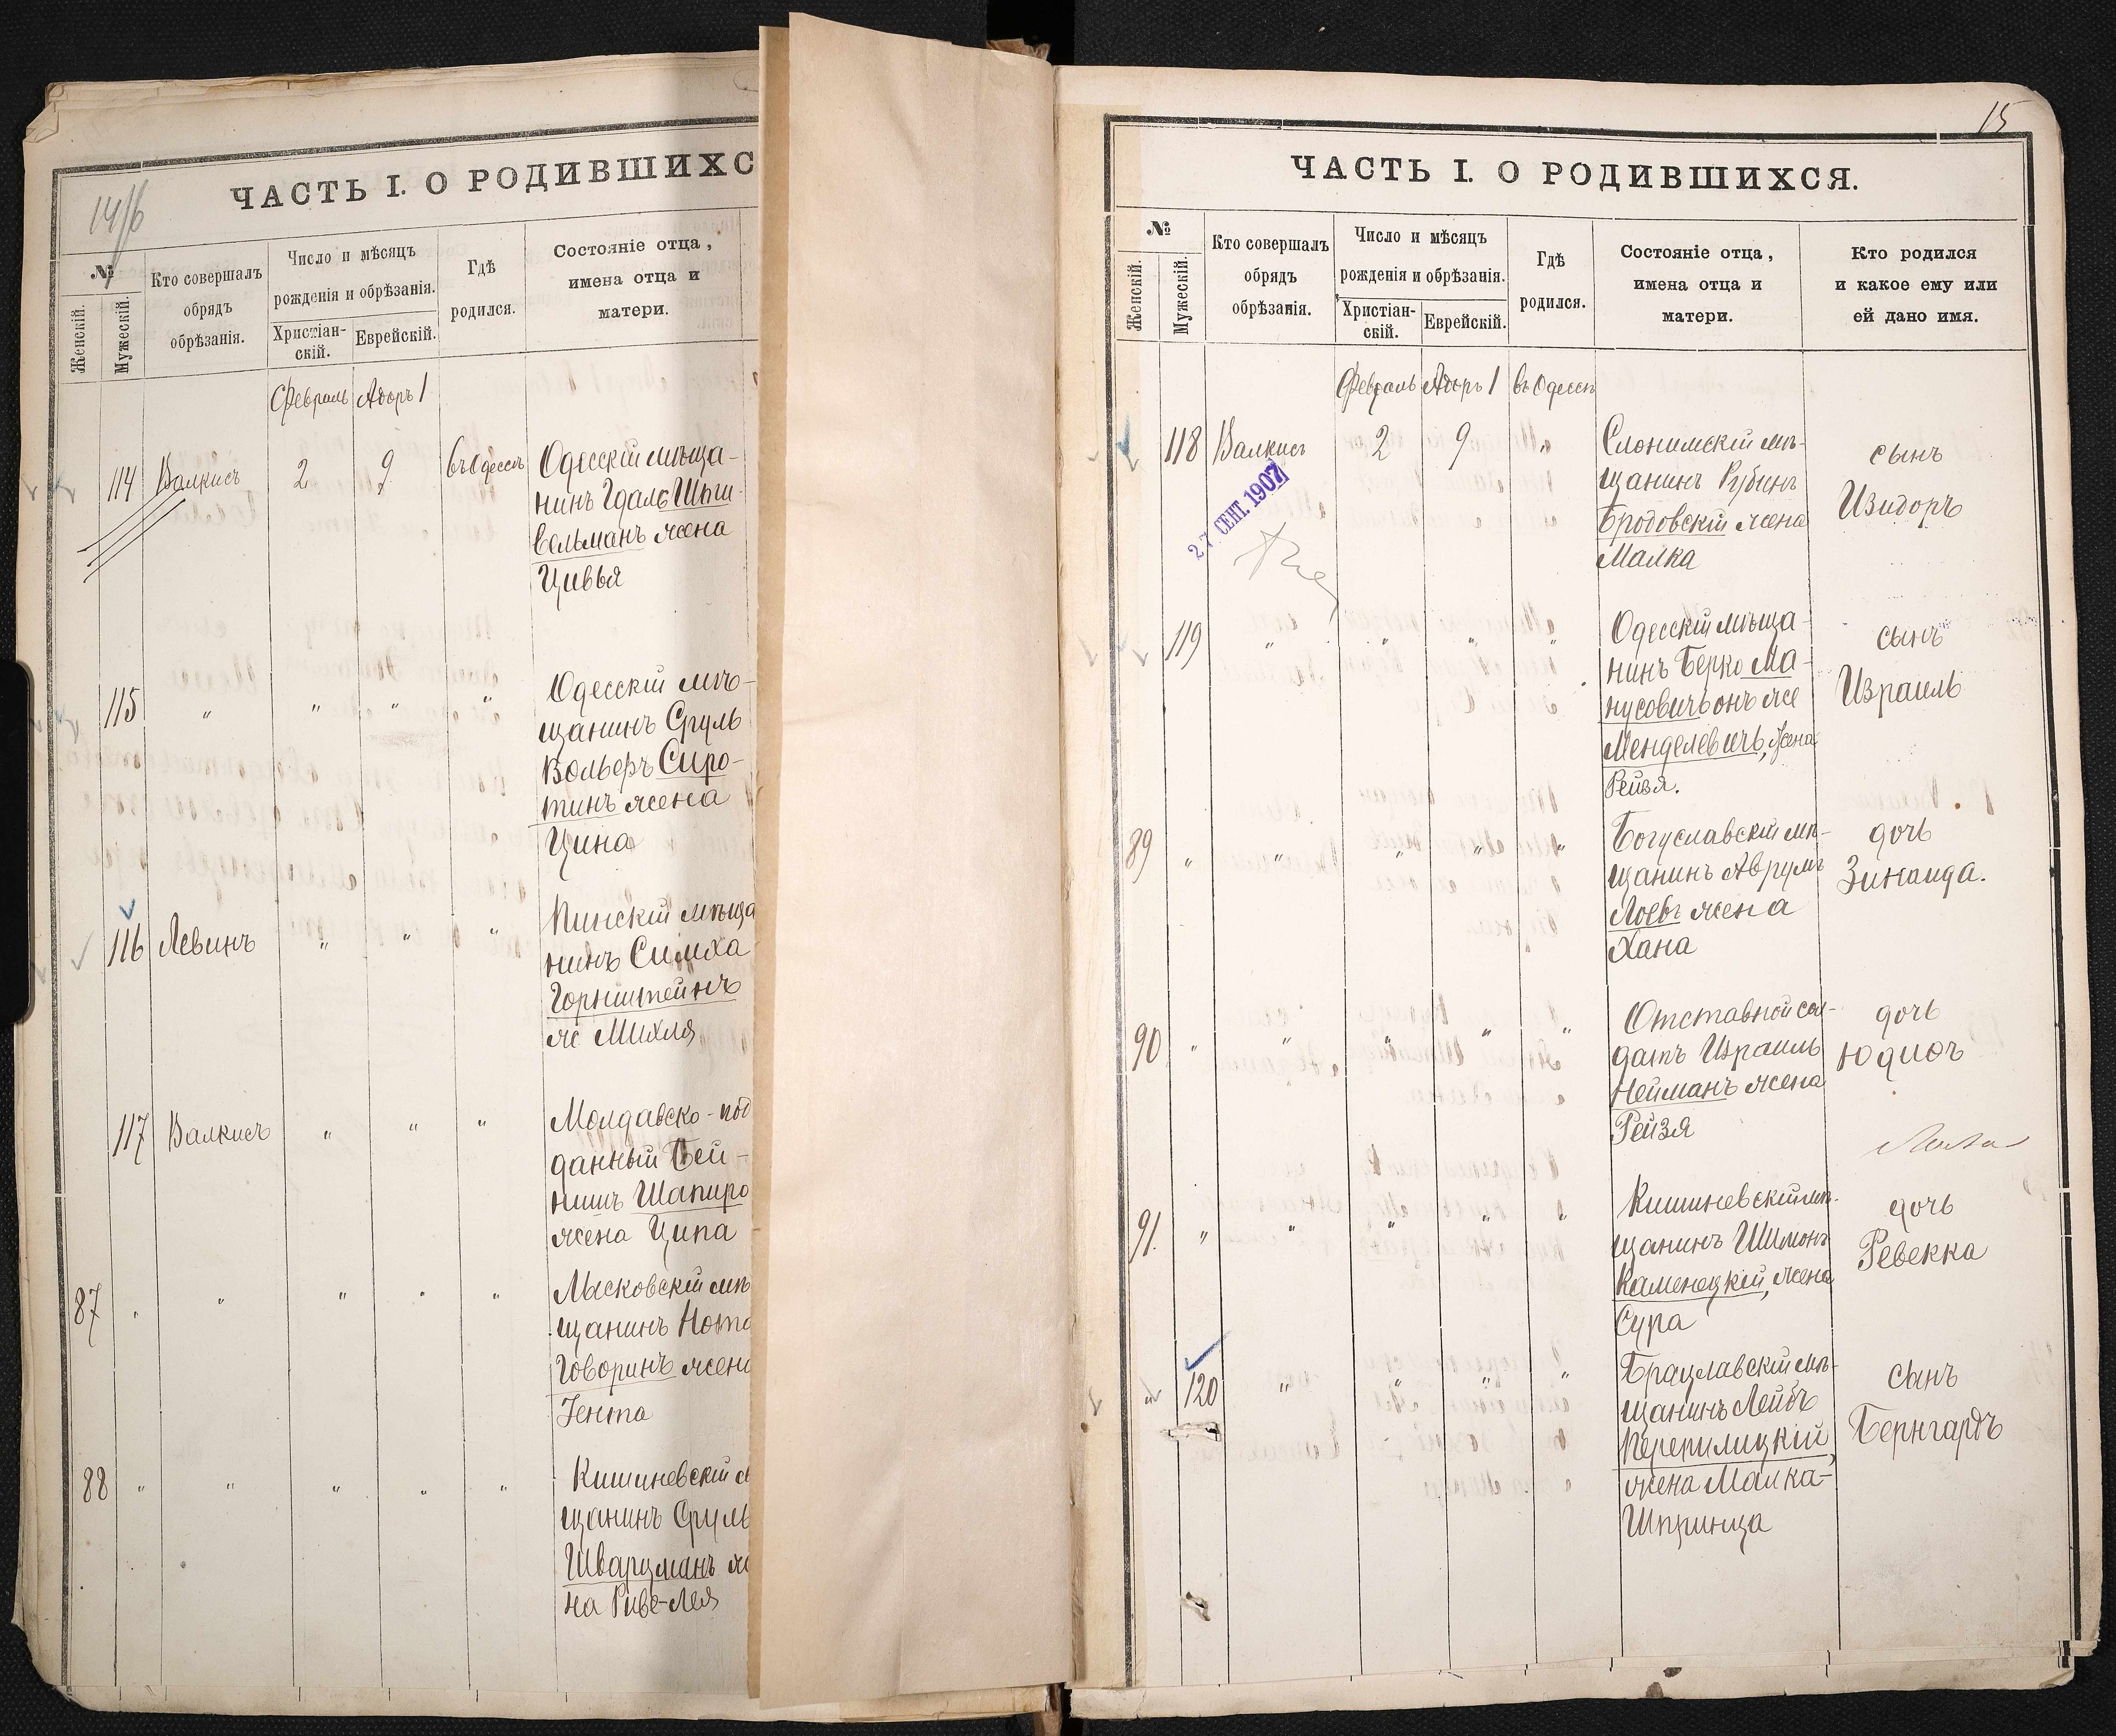 ЧАСТЬ I. О РОДИВШИХС
№
Женскій.
Мужескій.
Кто совершалъ
обрядъ
обрѣзанія.
Число и мѣсяцъ
рожденія и обрѣзанія.
Христіан-
скій.
Еврейскій.
Гдѣ
родился.
Состояніе отца,
имена отца и
матери.
Февраль Адоръ 1
114 Валкисъ 2 9 въ Одессѣ Одесскій мѣща-
нинъ Гдаль Шпи-
вельманъ жена
Цивья
115 " " " " Одесскій мѣ-
щанинъ Сруль
Вольфъ Сиро-
тинъ жена
Цина
116 Левинъ " " " Пинскій мѣща
нинъ Симха
Горнштейнъ
ж Михля
117 Валкисъ " " " Молдавско-под
данный Бей-
нишъ Шапиро
жена Ципа
87 " " " " " Лысковскій мѣ
щанинъ Нота
Говоринъ жена
Гента
88 " " " " " Кишиневскій
щанинъ Сруль
Шварцманъ же
на Риве-Лея
15
ЧАСТЬ I. О РОДИВШИХСЯ.
№
Женскій.
Мужескій.
Кто совершалъ
обрядъ
обрѣзанія.
Число и мѣсяцъ
рожденія и обрѣзанія.
Христіан-
скій.
Еврейскій.
Гдѣ
родился.
Состояніе отца,
имена отца и
матери.
Кто родился
и какое ему или
ей дано имя.
Февраль Адоръ 1 въ Одессѣ
118 Валкисъ 2 9 " Слонимскій мѣ-
щанинъ Рубинъ
Бродовскій жена
Малка
сынъ
Изидоръ
27 СЕНТ. 1907
119 " " " " Одесскій мѣща-
нинъ Берко Ма-
нусовичъ онъ же
Менделевичъ, жена
Рейзя.
сынъ
Израиль
89 " " " " " Богуславскій мѣ-
щанинъ Аврумъ
Лоевъ жена
Хана
дочь
Зинаида.
90 " " " " " Отставной сол-
датъ Израиль
Нейманъ жена
Рейзя
дочь
Юдиѳь
91. " " " " " Кишиневскій мѣ-
щанинъ Шимонъ
Каменецкій, жена
Сура
дочь
Ревекка
" 120 " " " " Брацлавскій мѣ-
щанинъ Лейбъ
Перепилицкій,
жена Малка-
Шпринца
сынъ
Бернгардъ